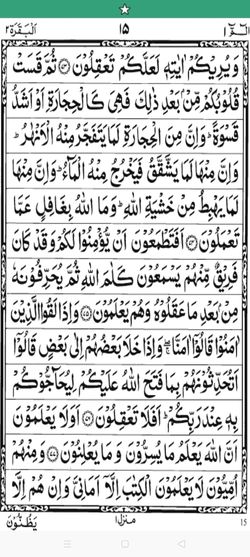 اَلْبَقَرَة ٢ ١٥ الٓمّٓ ١
وَيُرِيْكُمْ اٰيٰتِهٖ لَعَلَّكُمْ تَعْقِلُوْنَ ۝٧٣ ثُمَّ قَسَتْ
قُلُوْبُكُمْ مِّنْۢ بَعْدِ ذٰلِكَ فَهِىَ كَالْحِجَارَةِ اَوْ اَشَدُّ
قَسْوَةً ؕ وَاِنَّ مِنَ الْحِجَارَةِ لَمَا يَتَفَجَّرُ مِنْهُ الْاَنْهٰرُ ؕ
وَاِنَّ مِنْهَا لَمَا يَشَّقَّقُ فَيَخْرُجُ مِنْهُ الْمَآءُ ؕ وَاِنَّ مِنْهَا
لَمَا يَهْبِطُ مِنْ خَشْيَةِ اللّٰهِ ؕ وَمَا اللّٰهُ بِغَافِلٍ عَمَّا
تَعْمَلُوْنَ ۝٧٤ اَفَتَطْمَعُوْنَ اَنْ يُّؤْمِنُوْا لَكُمْ وَقَدْ كَانَ
فَرِيْقٌ مِّنْهُمْ يَسْمَعُوْنَ كَلٰمَ اللّٰهِ ثُمَّ يُحَرِّفُوْنَهٗ
مِنْۢ بَعْدِ مَا عَقَلُوْهُ وَهُمْ يَعْلَمُوْنَ ۝٧٥ وَاِذَا لَقُوا الَّذِيْنَ
اٰمَنُوْا قَالُوْٓا اٰمَنَّا ۖۚ وَاِذَا خَلَا بَعْضُهُمْ اِلٰى بَعْضٍ قَالُوْٓا
اَتُحَدِّثُوْنَهُمْ بِمَا فَتَحَ اللّٰهُ عَلَيْكُمْ لِيُحَآجُّوْكُمْ
بِهٖ عِنْدَ رَبِّكُمْ ؕ اَفَلَا تَعْقِلُوْنَ ۝٧٦ اَوَلَا يَعْلَمُوْنَ
اَنَّ اللّٰهَ يَعْلَمُ مَا يُسِرُّوْنَ وَمَا يُعْلِنُوْنَ ۝٧٧ وَمِنْهُمْ
اُمِّيُّوْنَ لَا يَعْلَمُوْنَ الْكِتٰبَ اِلَّآ اَمَانِىَّ وَاِنْ هُمْ اِلَّا
يَظُنُّوْنَ منزل ١ 15